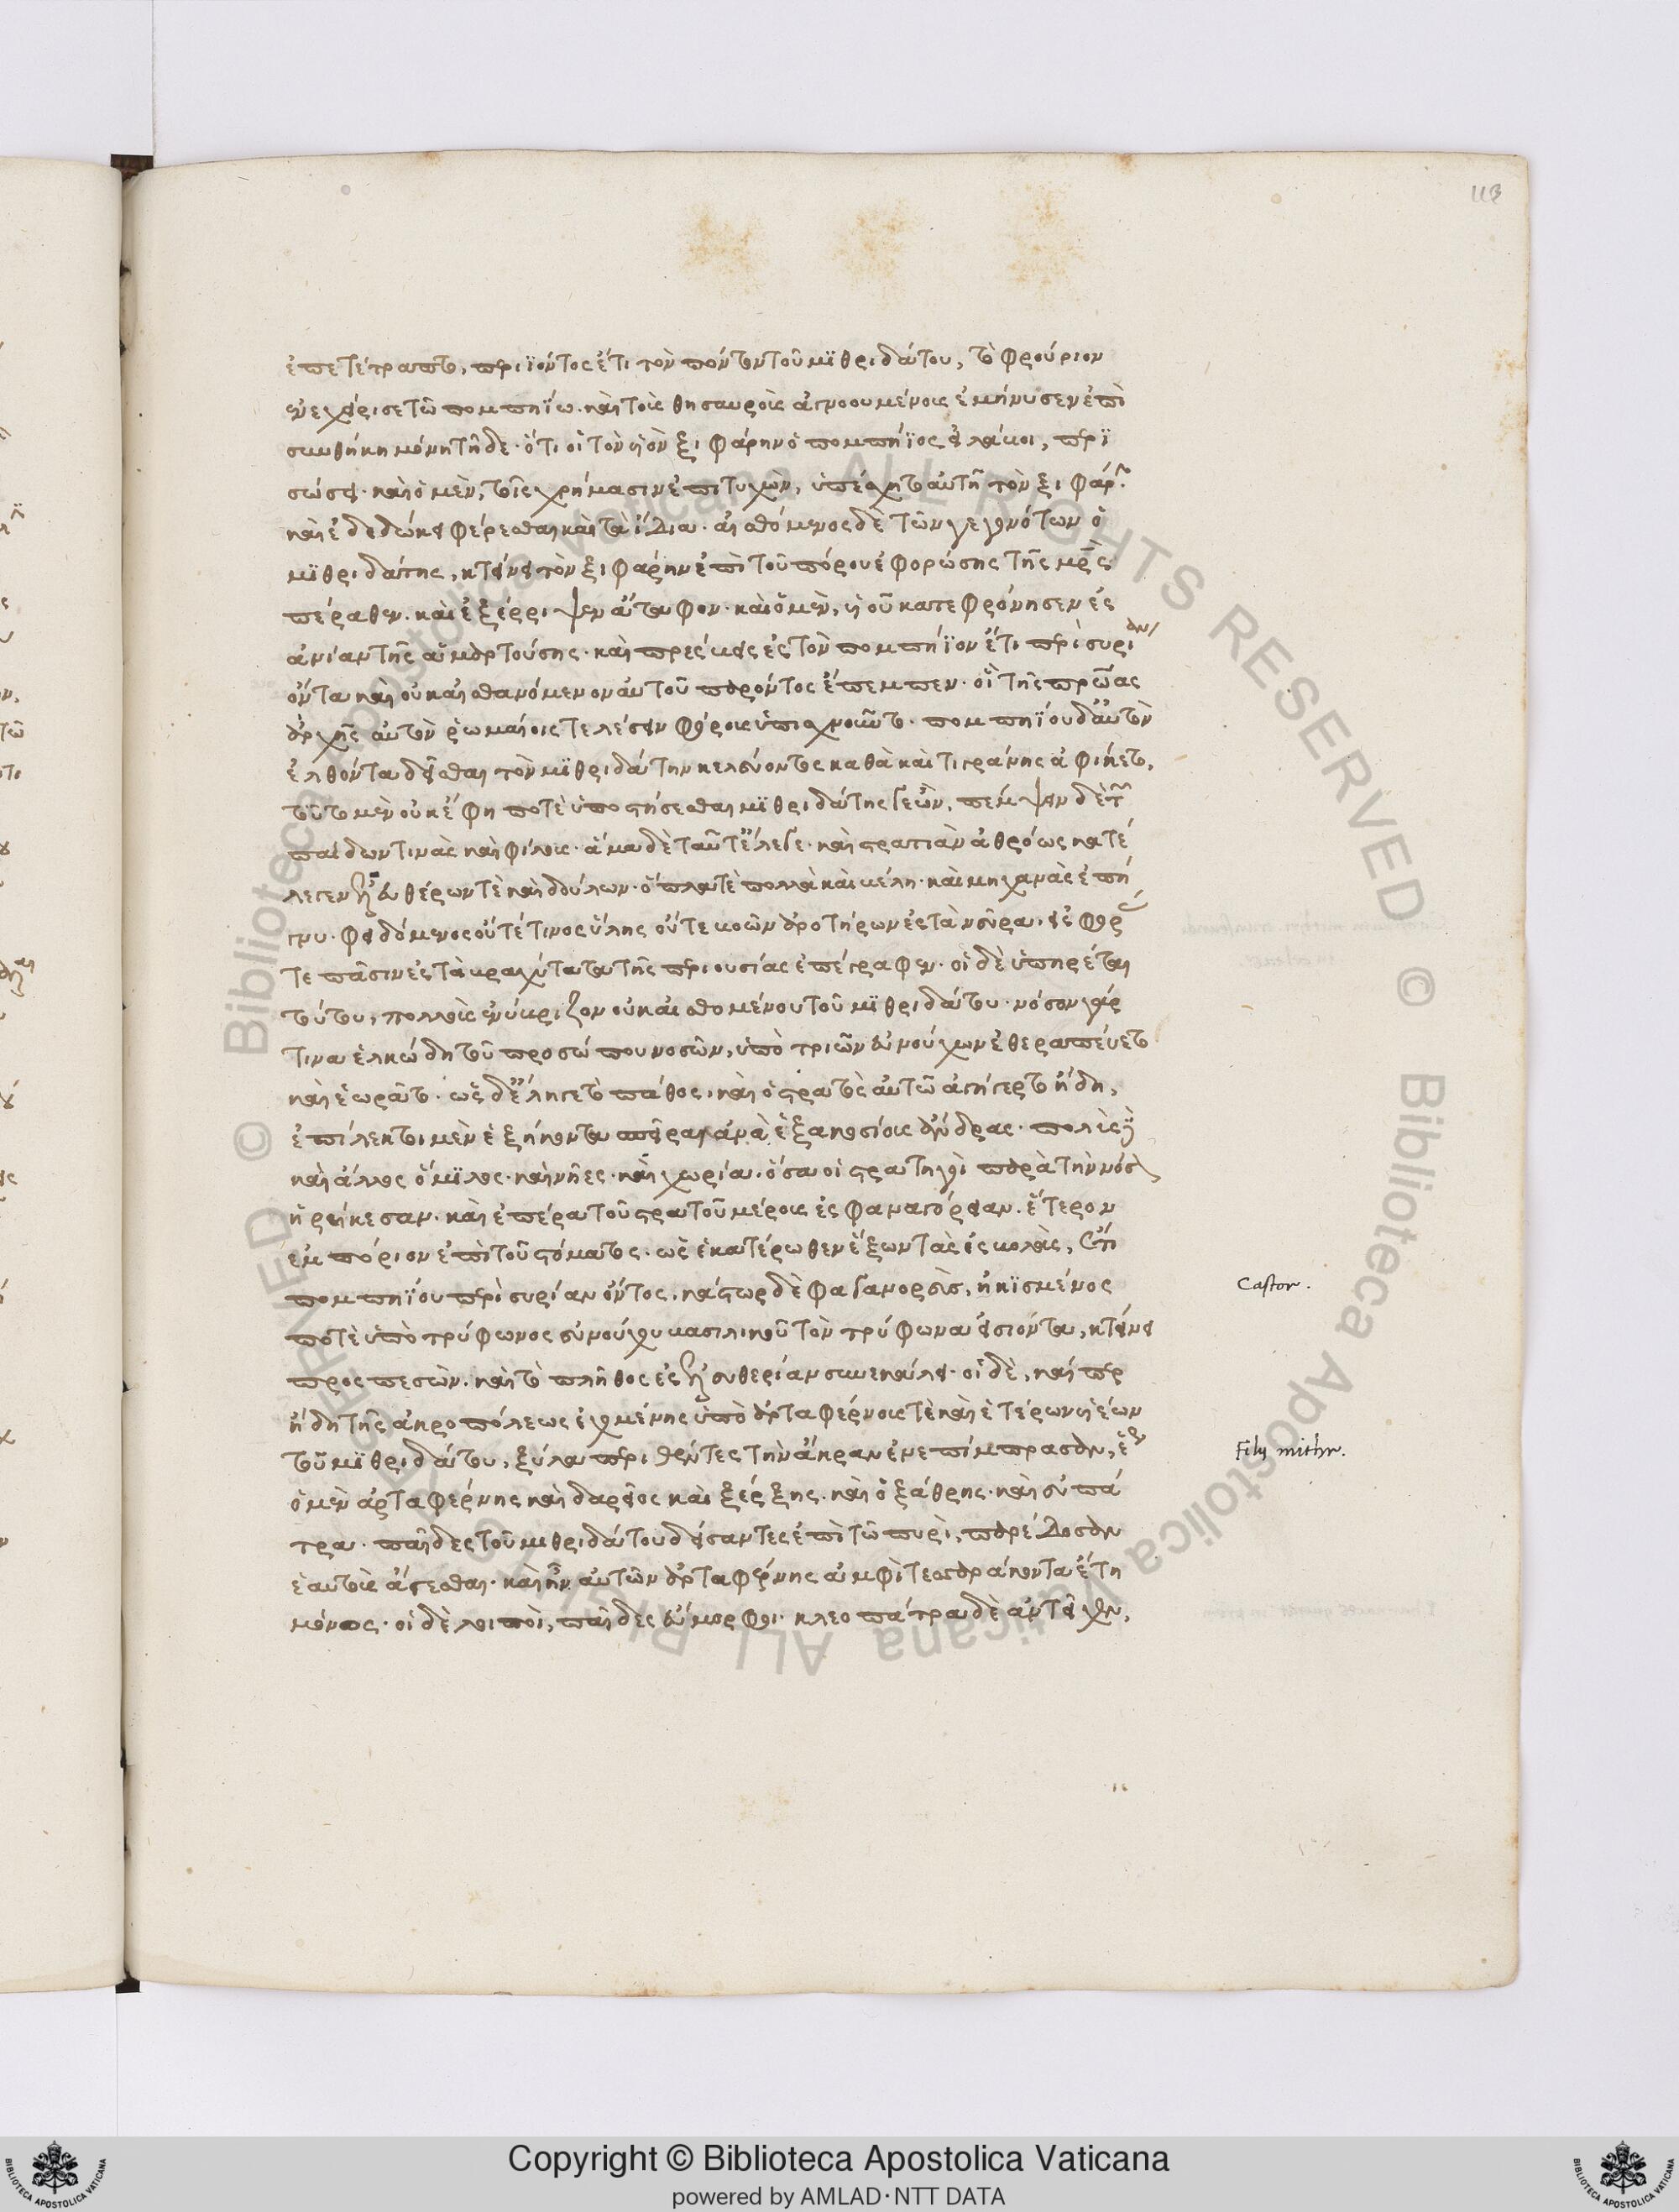 113
ἐπετέτραπτο, περιϊόντος ἔτι τὸν πόντον τοῦ μϊθριδάτου, τὸ φρούριον
ἐνεχείρισε τῶ πομπηΐω. καὶ τοὺς θησαυροὺς ἀγνοουμένους ἐμήνυσεν ἐπὶ
συνθήκη μόνη τῆδε· ὅτι οἱ τὸν υἱὸν ξιφάρην ὁ πομπήϊος εἰ λάβοι, περι
σώσει. καὶ ὁ μὲν, τοῖς χρήμασιν ἐπιτυχὼν, ὑπέσχητο αὐτῆ τὸν ξιφάρην
καὶ ἐδεδώκει φέρεσθαι καὶ τὰ ἴδια. αἰσθόμενος δὲ τῶν γεγονότων ὁ
μϊθριδάτης, κτείνει τὸν ξιφάρην ἐπὶ τοῦ πόρου ἐφορώσης τῆς μρς
πέραθεν. καὶ ἐξέρριψεν ἄταφον. καὶ ὁ μὲν, υἱοῦ κατεφρόνησεν ἐς
ἀνίαν τῆς ἁμαρτούσης. καὶ πρέσβεις ἐς τὸν πομπήϊον ἔτι περὶ συρίαν
ὄντα καὶ οὐκ αἰσθανόμενον αὐτοῦ παρόντος ἔπεμπεν. οἳ τῆς πρώας
ἀρχῆς αὐτὸν ῥωμαίοις τελέσειν φόρους ὑπισχνοῦντο. πομπηΐου δ' αὐτὸν
ἐλθόντα δεῖσθαι τὸν μϊθριδάτην κελεύοντος καθὰ καὶ τιγράνης ἀφίκετο,
τοῦτο μὲν οὐκ ἔφη ποτὲ ὑποστήσεσθαι μϊθριδάτης γε ὢν, πέμψειν δὲ τῶν
παίδων τινὰς καὶ φίλους. ἅμα δὲ ταῦτ' ἔλεγε. καὶ στρατιὰν ἀθρόως κατέ
λεγεν ἐλευθέρων τὲ καὶ δούλων. ὅπλα τὲ πολλὰ καὶ βέλη. καὶ μηχανὰς ἐπή
γνυ. φειδόμενος οὔτέ τινος ὕλης οὔτε βοῶν ἀροτήρων ἐς τὰ νεῦρα. εἰσφοράς
τε πᾶσιν ἐς τὰ βραχύτατα τῆς περιουσίας ἐπέγραφεν. οἱ δὲ ὑπηρέται
τούτου, πολλοὺς ἐνύβριζον οὐκ αἰσθομένου τοῦ μϊθριδάτου. νόσον γάρ
τινα ἑλκώδη τοῦ προσώπου νοσῶν, ὑπὸ τριῶν εὐνούχων ἐθεραπεύετο
καὶ ἑωρᾶτο. ὡς δ' ἔληγε τὸ πάθος, καὶ ὁ στρατὸς αὐτῶ ἀγήγερτο ἤδη,
ἐπίλεκτοι μὲν ἑξήκοντα σπεῖραι ἀνὰ ἑξακοσίους ἄνδρας. πολὺς δὲ
καὶ ἄλλος ὅμϊλος. καὶ νῆες. καὶ χωρία. ὅσα οἱ στρατηγοὶ παρὰ τὴν νόσον
ἡρήκεσαν. καὶ ἐπέρα τοῦ στρατοῦ μέρους ἐς φαναγόρειαν. ἕτερον
ἐμπόριον ἐπὶ τοῦ στόματος. ὡς ἑκατέρωθεν ἕξων τὰς ἐσβολὰς, ἔτι
πομπηΐου περὶ συρίαν ὄντος. κάστωρ δὲ φαγανορεὺς, ἠκϊσμένος
ποτὲ ὑπὸ τρύφωνος εὐνούχου βασιλικοῦ τὸν τρύφωνα ἐσιόντα, κτείνει
προςπεσών. καὶ τὸ πλῆθος ἐς ἐλευθερίαν συνεκάλει. οἱ δὲ, καίπερ
ἤδη τῆς ἀκροπόλεως ἐχομένης ὑπὸ ἀρταφέρνους τὲ καὶ ἑτέρων υἱέων
τοῦ μϊθριδάτου, ξύλα περιθέντες τὴν ἄκραν ἐνεπίμπρασαν, ἕως
ὁ μὲν ἀρταφέρνης καὶ δαρεῖος καὶ ξέρξης. καὶ ὀξάθρης. καὶ εὐπά
τρα. παῖδες τοῦ μιθριδάτου δείσαντες ἐπὶ τῶ πυρὶ, παρέδοσαν
ἑαυτοὺς ἄγεσθαι. καὶ ἦν αὐτῶν ἀρταφέρνης ἀμφὶ τεσσαράκοντα ἔτη
μόνος. οἱ δὲ λοιποὶ, παῖδες εὔμορφοι. κλεοπάτρα δὲ ἀντεῖχεν,
Castor.
Filij mithr.
Copyright © Biblioteca Apostolica Vaticana
powered by AMLAD·NTT DATA